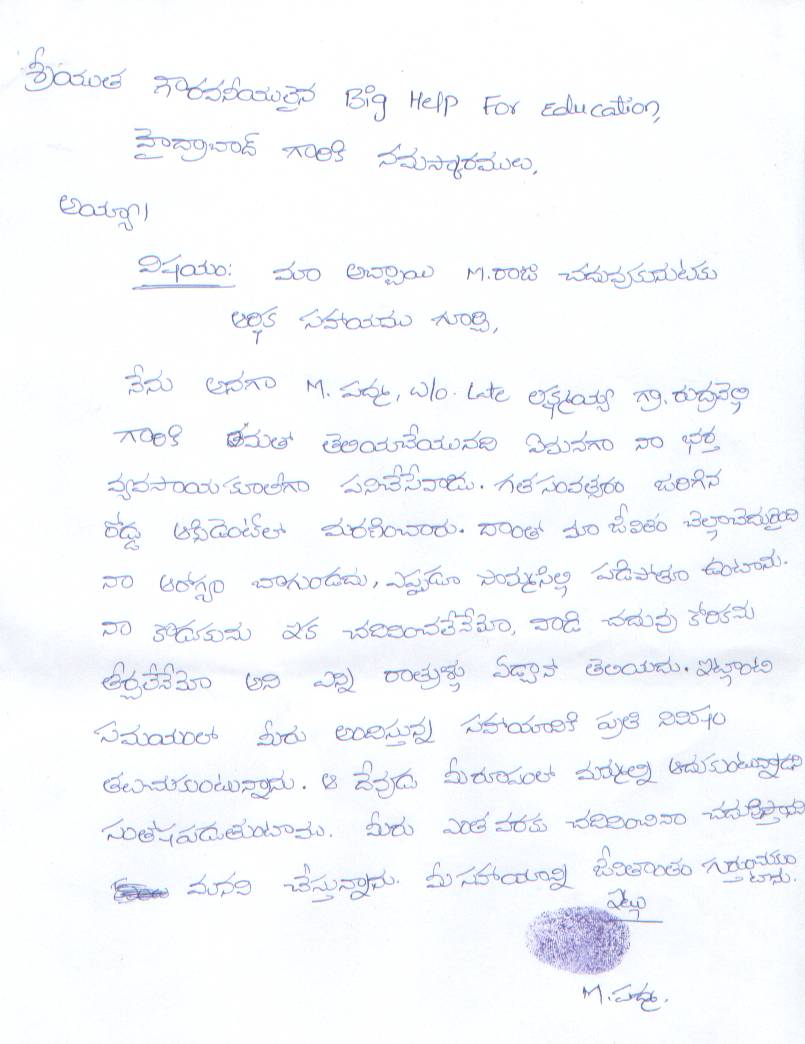 శ్రీయుత గౌరవనీయులైన Big Help For Education,
హైద్రాబాద్ గారికి నమస్కారములు,
అయ్యా।
విషయం: మా అబ్బాయి M.రాజు చదువుకునుటకు
ఆర్థిక సహాయము గూర్చి,
నేను అనగా M. పద్మ, W/o. Late లక్ష్మయ్య గ్రా. రుద్రవెల్లి
గారికి తమతో తెలియచేయునది ఏమనగా నా భర్త
వ్యవసాయ కూలీగా పనిచేసేవాడు. గత సంవత్సరం జరిగిన
రోడ్డు ఆక్సిడెంట్‌లో మరణించారు. దాంతో మా జీవితం చెల్లాచెదురైంది
నా ఆరోగ్యం బాగుండదు, ఎప్పుడూ సొమ్మసిల్లి పడిపోతూ ఉంటాను.
నా కొడుకును ఇక చదివించలేనేమో, వాడి చదువు కోరికను
తీర్చలేనేమో అని ఎన్ని రాత్రుళ్లు ఏడ్చానో తెలియదు. ఇట్లాంటి
సమయంలో మీరు అందిస్తున్న సహాయానికి ప్రతి నిమిషం
తలుచుకుంటున్నాను. ఆ దేవుడు మీరూపంలో మమ్మల్ని ఆదుకుంటున్నాడని
సంతోషపడుతుంటాము. మీరు ఎంత వరకు చదివించినా
మనవి చేస్తున్నాను. మీ సహాయాన్ని జీవితాంతం
ఇట్లు
M. పద్మ.